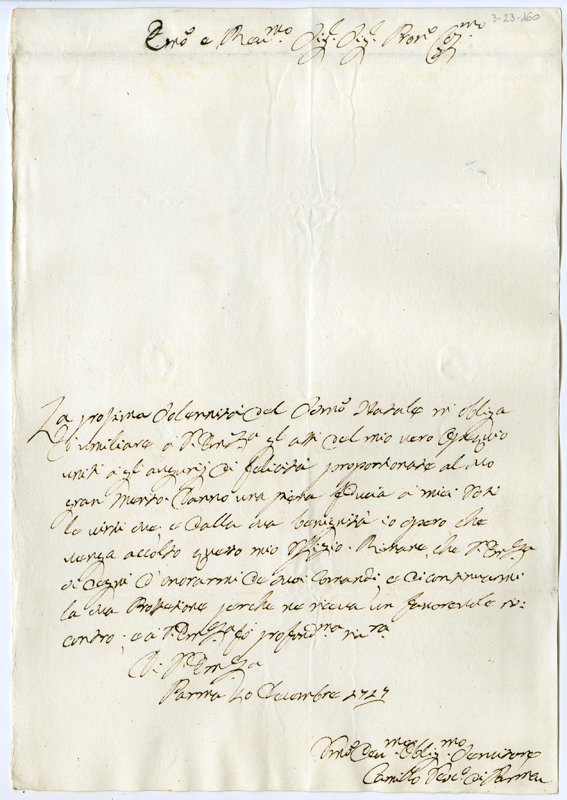 3-23-160
Emo e Revmo Sigr. Sigr. Pron. Colmo
La prossima Solennità del Smo Natale mi obliga
d'umiliare a Va. Emza gli atti del mio vero Ossequio
uniti a gli augurij di felicità proportionate al suo
gran merito. Danno una piena fiducia a miei Voti
le virtù sue, e dalla sua benignità io spero che
venga accolto questo mio Offizio. Rimane, che Va. Emza
si degni d'onorarmi de suoi Comandi, e di continuarmi
la sua Protezione perche ne riceva un favorevole ri:
scontro; e a Va. Emza fò profondma riva
Di Va. Emza
Parma 20 Decembre 1727
Umo Devmo Obligmo Servitore
Camillo Vesco di Parma